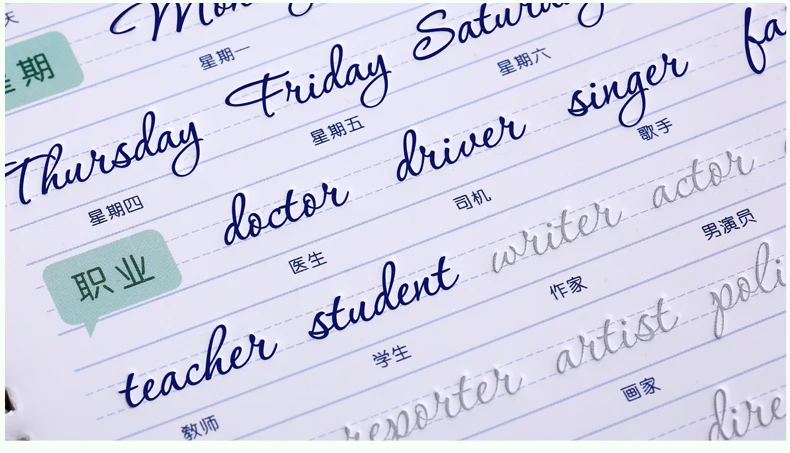 天
星期一
期
Thursday Friday Saturday
星期四 星期五 星期六
职业
doctor driver singer
医生 司机 歌手
teacher student writer actor
教师 学生 作家 男演员
reporter artist
画家